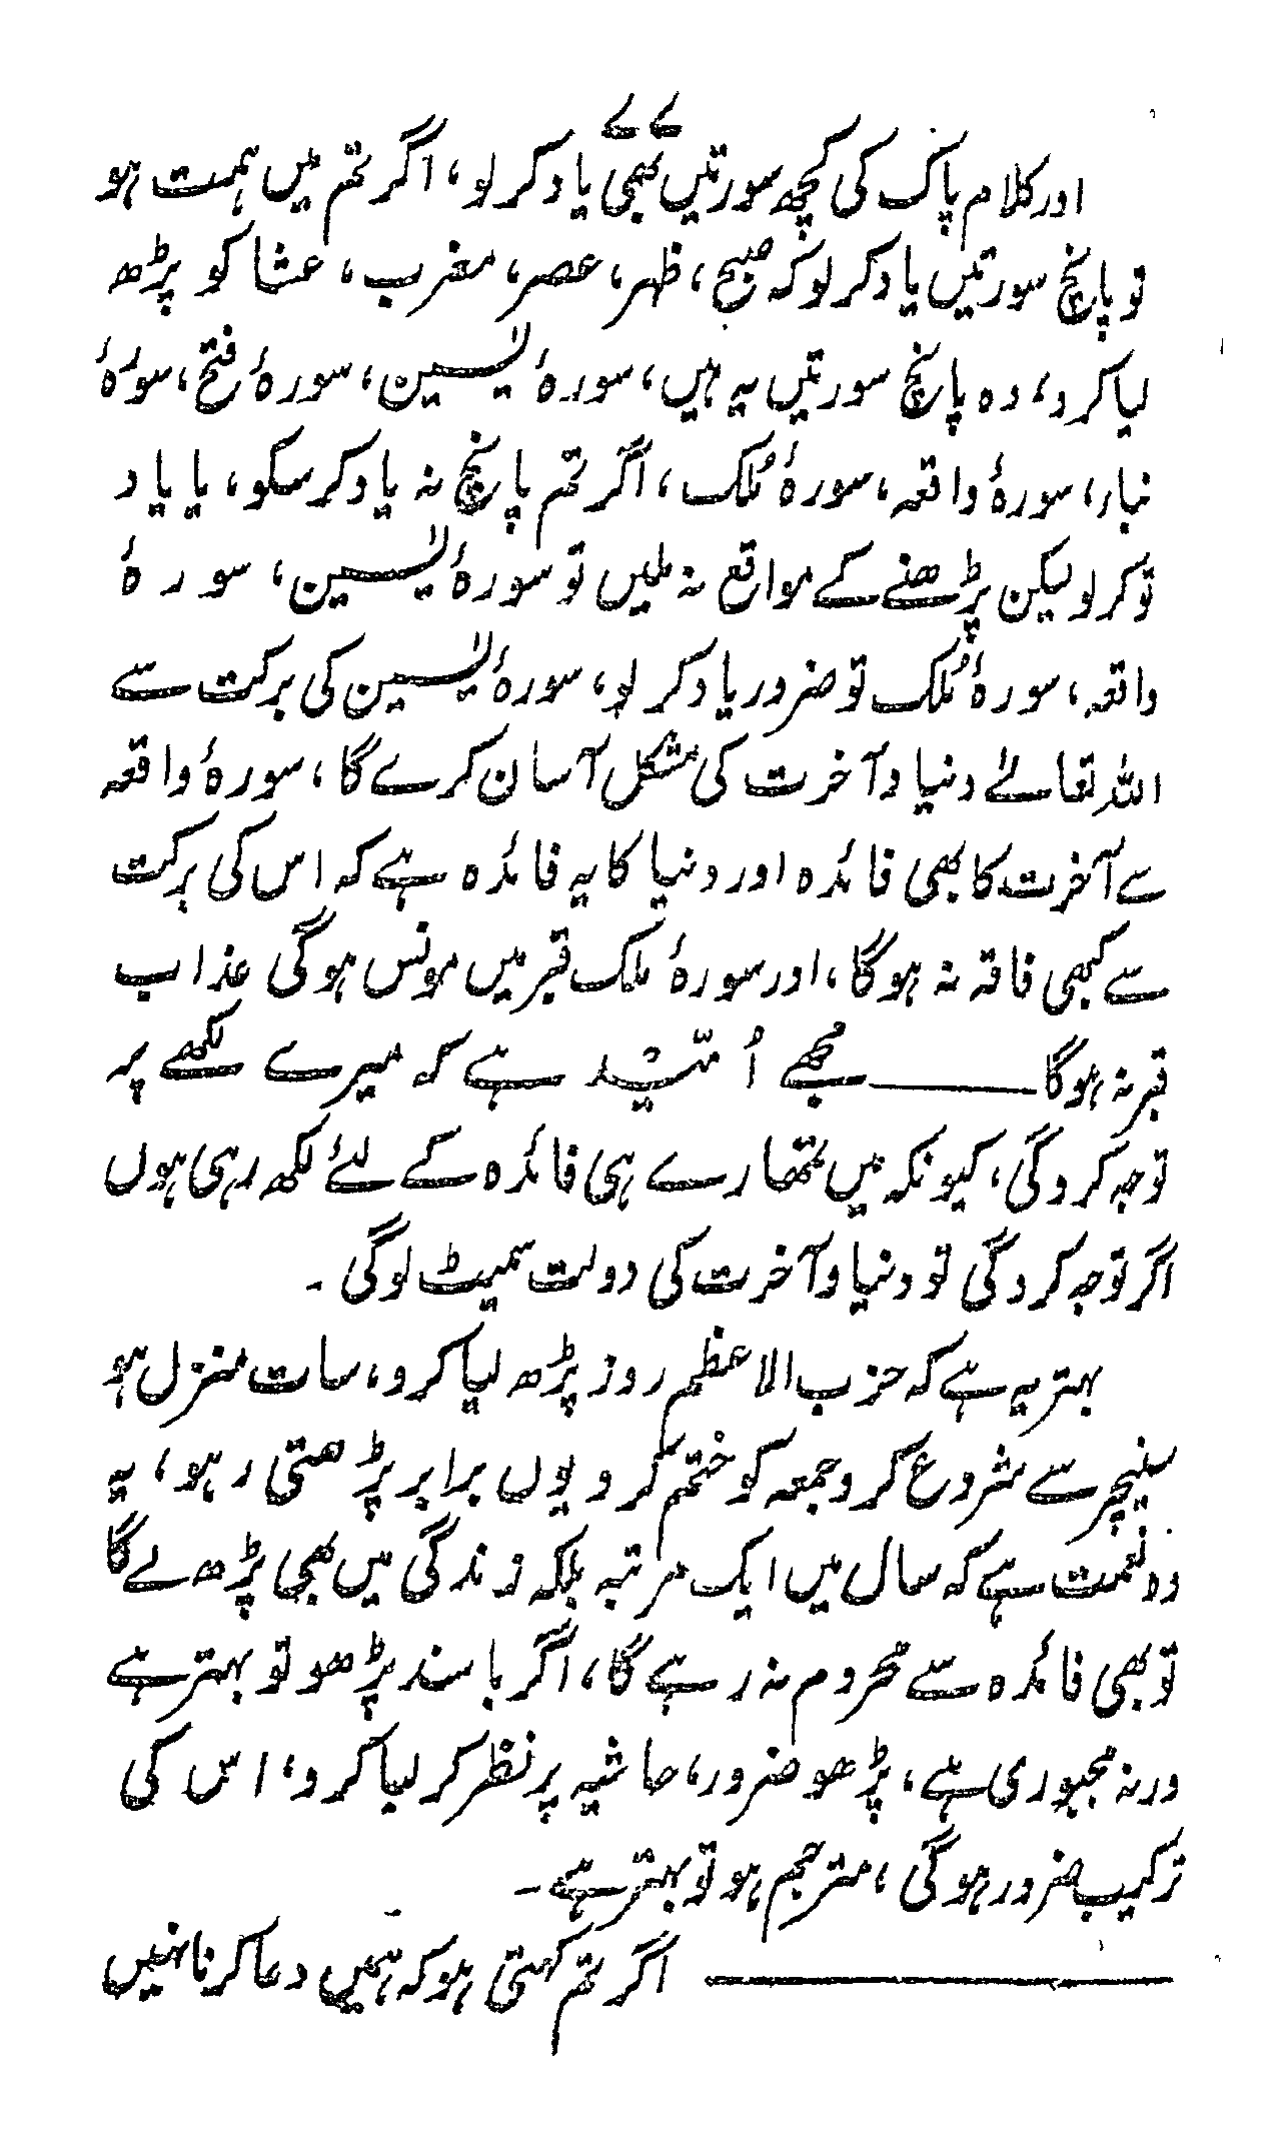 ۷۷
اور کلام پاک کی کچھ سورتیں بھی یاد کر لو، اگر تم میں ہمت ہو
تو پانچ سورتیں یاد کر لو کہ صبح، ظہر، عصر، مغرب، عشا کو پڑھ
لیا کرو، وہ پانچ سورتیں یہ ہیں، سورۂ یٰسین، سورۂ فتح، سورۂ
نباء، سورۂ واقعہ، سورۂ مُلک، اگر تم پانچ نہ یاد کر سکو، یا یاد
تو کر لو لیکن پڑھنے کے مواقع نہ ملیں تو سورۂ یٰسین، سورۂ
واقعہ، سورۂ مُلک تو ضرور یاد کر لو، سورۂ یٰسین کی برکت سے
اللہ تعالےٰ دنیا و آخرت کی مشکل آسان کرے گا، سورۂ واقعہ
سے آخرت کا بھی فائدہ اور دنیا کا یہ فائدہ ہے کہ اس کی برکت
سے کبھی فاقہ نہ ہوگا، اور سورۂ ملک قبر میں مونس ہوگی عذاب
قبر نہ ہوگا ——— مجھے اُمّید ہے کہ میرے لکھے پر
توجہ کروگی، کیونکہ میں تمھارے ہی فائدہ کے لئے لکھ رہی ہوں
اگر توجہ کروگی تو دنیا و آخرت کی دولت سمیٹ لوگی۔
بہتر یہ ہے کہ حزب الاعظم روز پڑھ لیا کرو، سات منزل ہو
سنیچر سے شروع کرو جمعہ کو ختم کرو یوں برابر پڑھتی رہو، یہ
وہ نعمت ہے کہ سال میں ایک مرتبہ بلکہ زندگی میں بھی پڑھ لے گا
تو بھی فائدہ سے محروم نہ رہے گا، اگر باسند پڑھو تو بہتر ہے
ورنہ مجبوری ہے، پڑھو ضرور، حاشیہ پر نظر کر لیا کرو، اس کی
ترکیب ضرور ہوگی، مترجم ہو تو بہتر ہے۔
——————— اگر تم کہتی ہو کہ ہمیں دعا کرنا نہیں